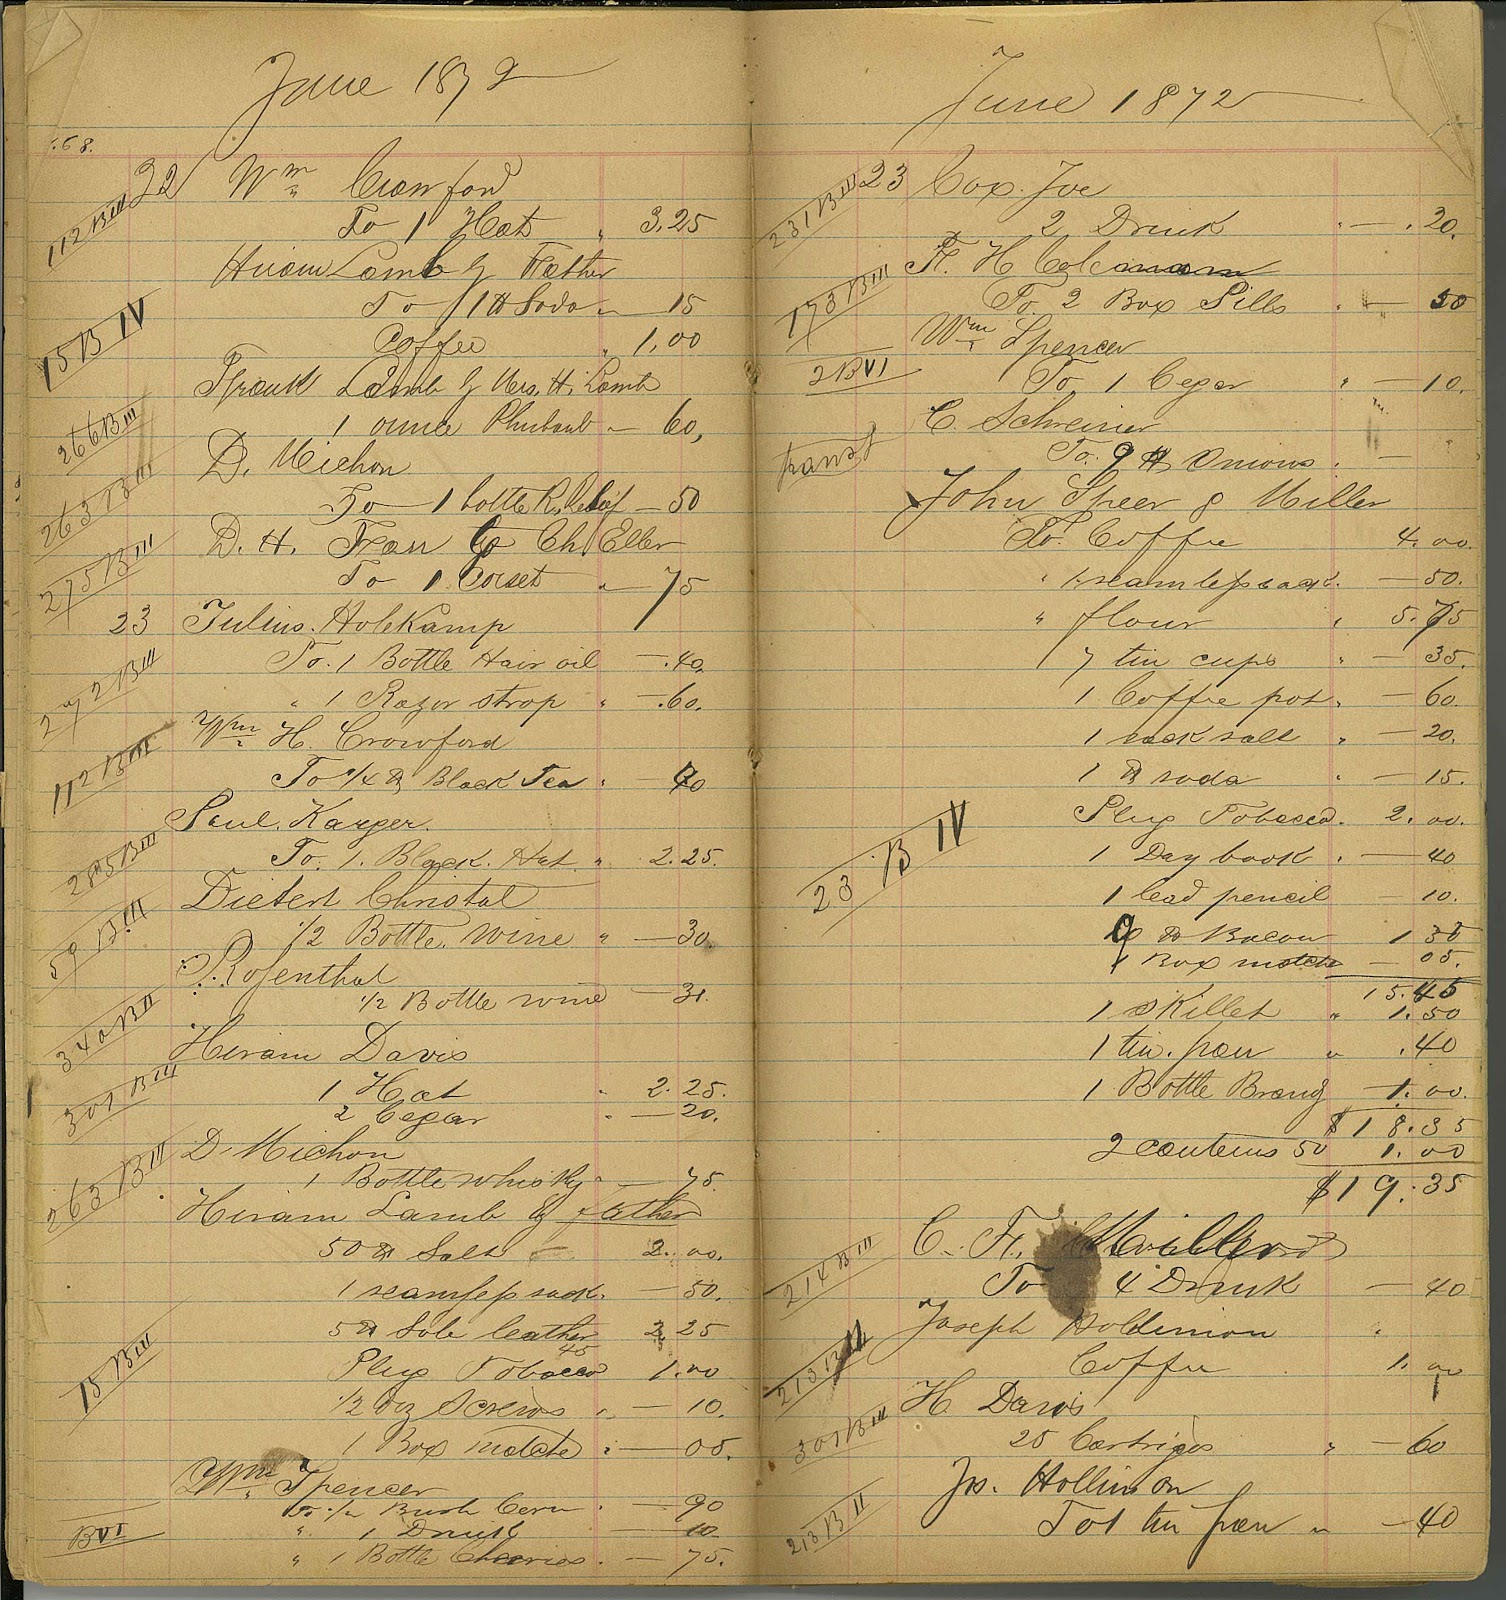 June 1872
.68.
22 Wm Crawford
112 B III
To 1 Hat " 3.25
Hiram Lamb by Father
To 1 ℔ Soda " 15
15 B IV
Coffee " 1,00
Frank Lamb by Mrs. H. Lamb
266 B III
1 ounce Rhubarb — 60,
D. Michon
263 B III
To 1 bottle R. Relief — 50
D. H. Frau by Ch Eller
275 B III
To 1 Corset " — 75
23 Julius Holekamp
To. 1 Bottle Hair oil — .40.
272 B III
" 1 Razor strop " — .60.
Wm H. Crawford
112 B III
To 1/4 ℔ Black Tea " —
Paul. Karger.
285 B III
To. 1. Black. Hat " 2.25.
Dietert Christal
59 B. III
1/2 Bottle. wine " — 30.
Rosenthal
1/2 Bottle wine —
340 B II
Hiram Davis
1 Hat " 2.25.
301 B III
2 Cegar " — 20.
D. Michon
263 B III
1 Bottle whisky " — 75.
Hiram Lamb by father
50 ℔ Salt — 2.00.
1 seamless sack. — 50.
5 ℔ Sole leather 2.25
15 B III
45
Plug Tobacco 1.00
1/2 doz Screws " — 10.
1 Box matche " — 05.
Wm Spencer
To 1/2 Bush Corn " — 90
B VI
" 1 Drink — 10
" 1 Bottle Cherries. — 75.
June 1872
23 Cox. Joe
231 B III
2 Drink " — .20.
H. Coleman
173 B III
To. 2 Box Pills " — 50
Wm Spencer
2 B VI
To 1 Cegar " — 10.
C. Schreiner
transf
To. 9 ℔ Onions. —
John Speer & Miller
To. Coffee 4.00.
" 1 seamless sack. — 50.
" flour " 5.75
7 tin cups " — 35.
1 Coffee pot. — 60.
1 sack salt " — 20.
1 ℔ soda " — 15.
Plug Tobacco. 2.00.
23 B IV
1 Day book " — 40
1 lead pencil — 10.
9 ℔ Bacon 1 35
1 Box matche — 05.
15.45
1 Skillet " 1.50
1 tin. pan " .40
1 Bottle Brandy — 1.00.
$18.35
2 canteens 50 1.00
$19.35
C. F.
214 B III
To 4 Drink — 40
Joseph Hollimon
213 B II
Coffee 1.00
H. Davis
301 B III
25 Cartriges " — 60
Js. Hollimon
213 B II
To 1 tin pan " — 40